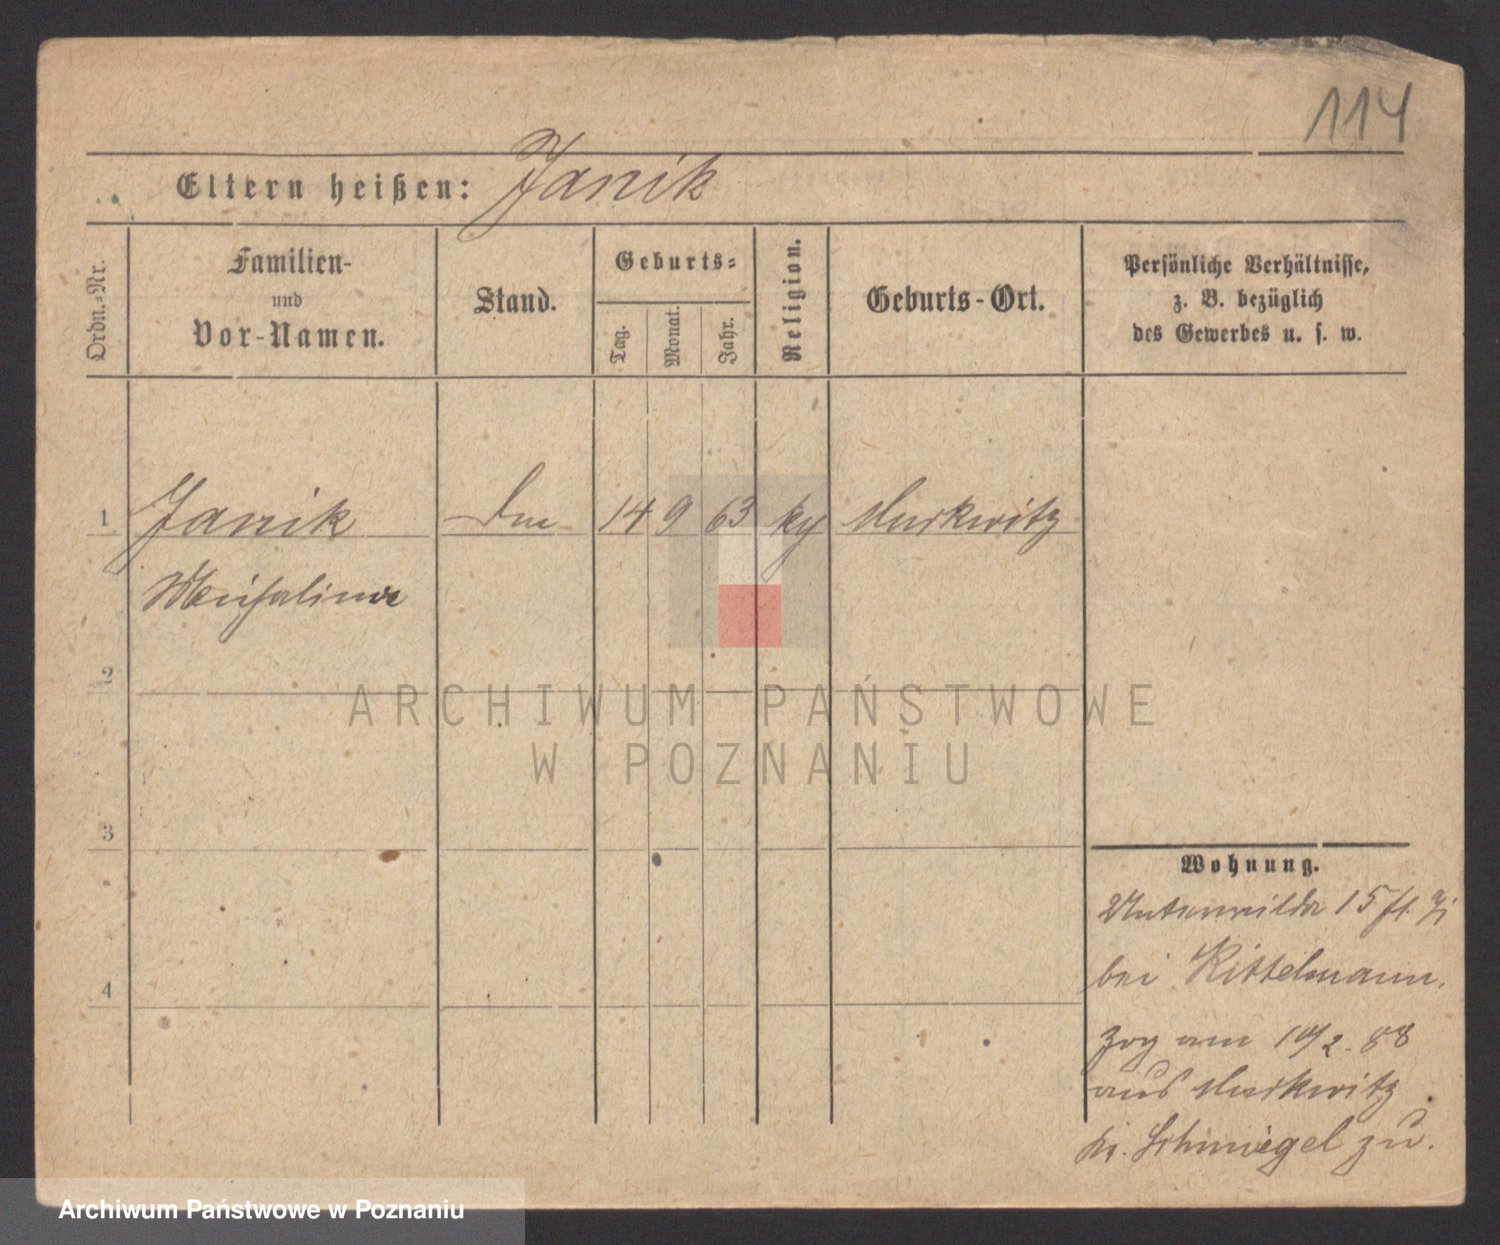 114
Eltern heißen: Janik
Ordn.-Nr.
Familien-
und
Vor-Namen.
Stand.
Geburts-
Tag.
Monat.
Jahr.
Religion.
Geburts-Ort.
Persönliche Verhältnisse,
z. B. bezüglich
des Gewerbes u. s. w.
1 Janik 14 9 63 Murkwitz
2
3
4
Wohnung.
Unterwilda 15
bei Kittelmann.
zog am 10/2. 88
aus Murkwitz
Kr. Schmiegel zu.
ARCHIWUM PAŃSTWOWE
W POZNANIU
Archiwum Państwowe w Poznaniu